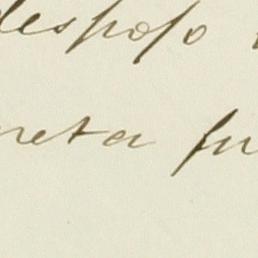 desposo
neta fu